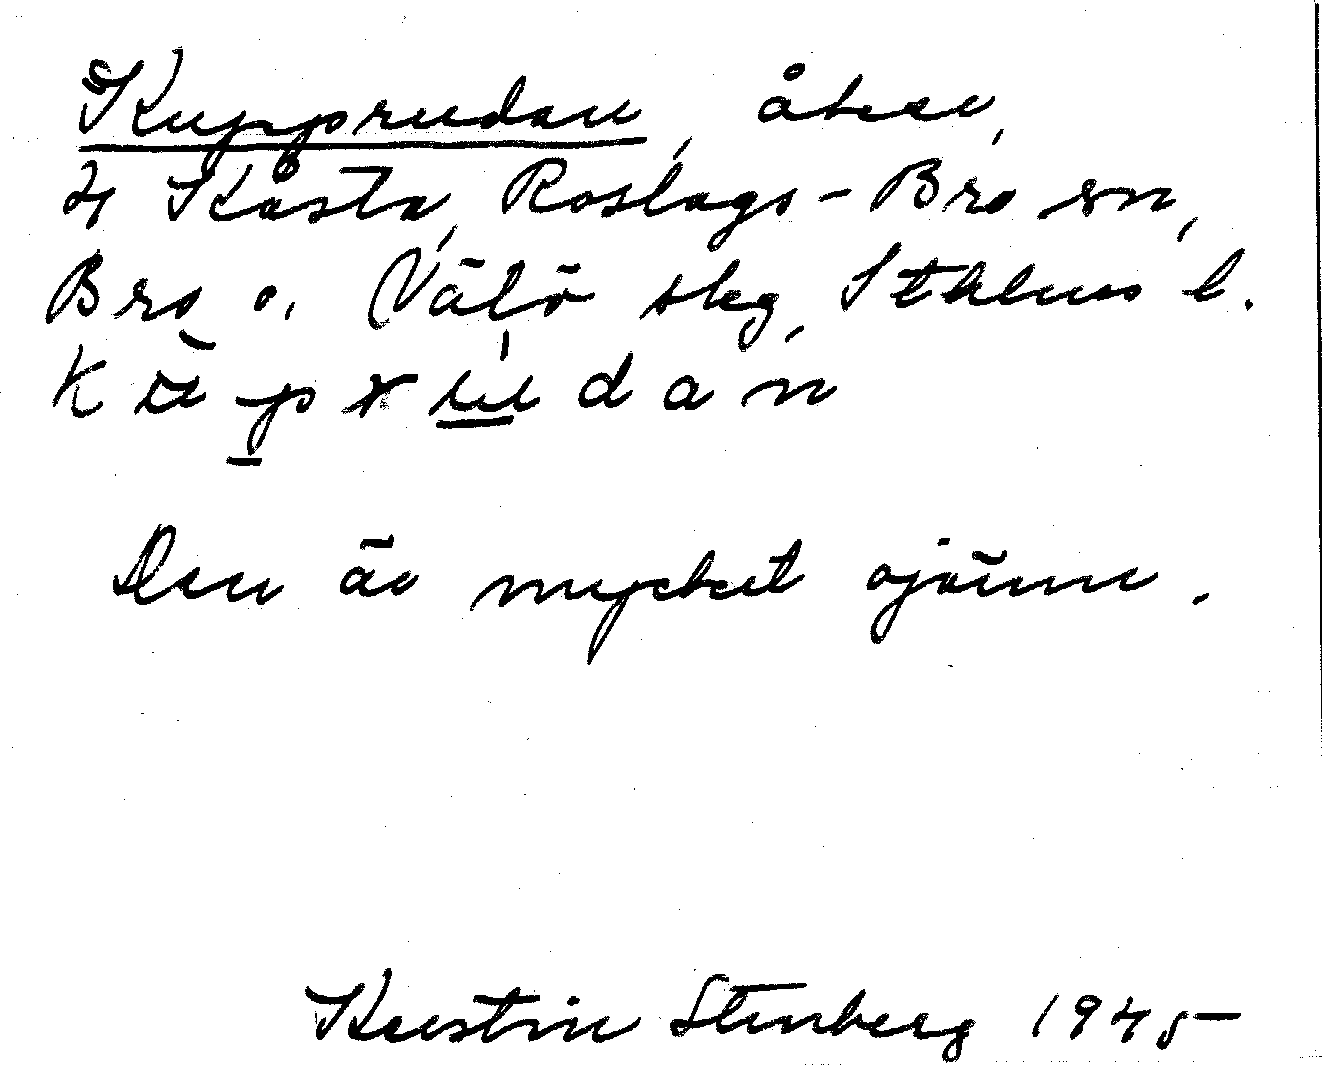 Kupprudan, åker,
4 Kåsta, Roslags-Bro sn,
Bro o. Vätö skg, Stklms l.
Den är mycket ojämn.
Kerstin Stenberg 1945